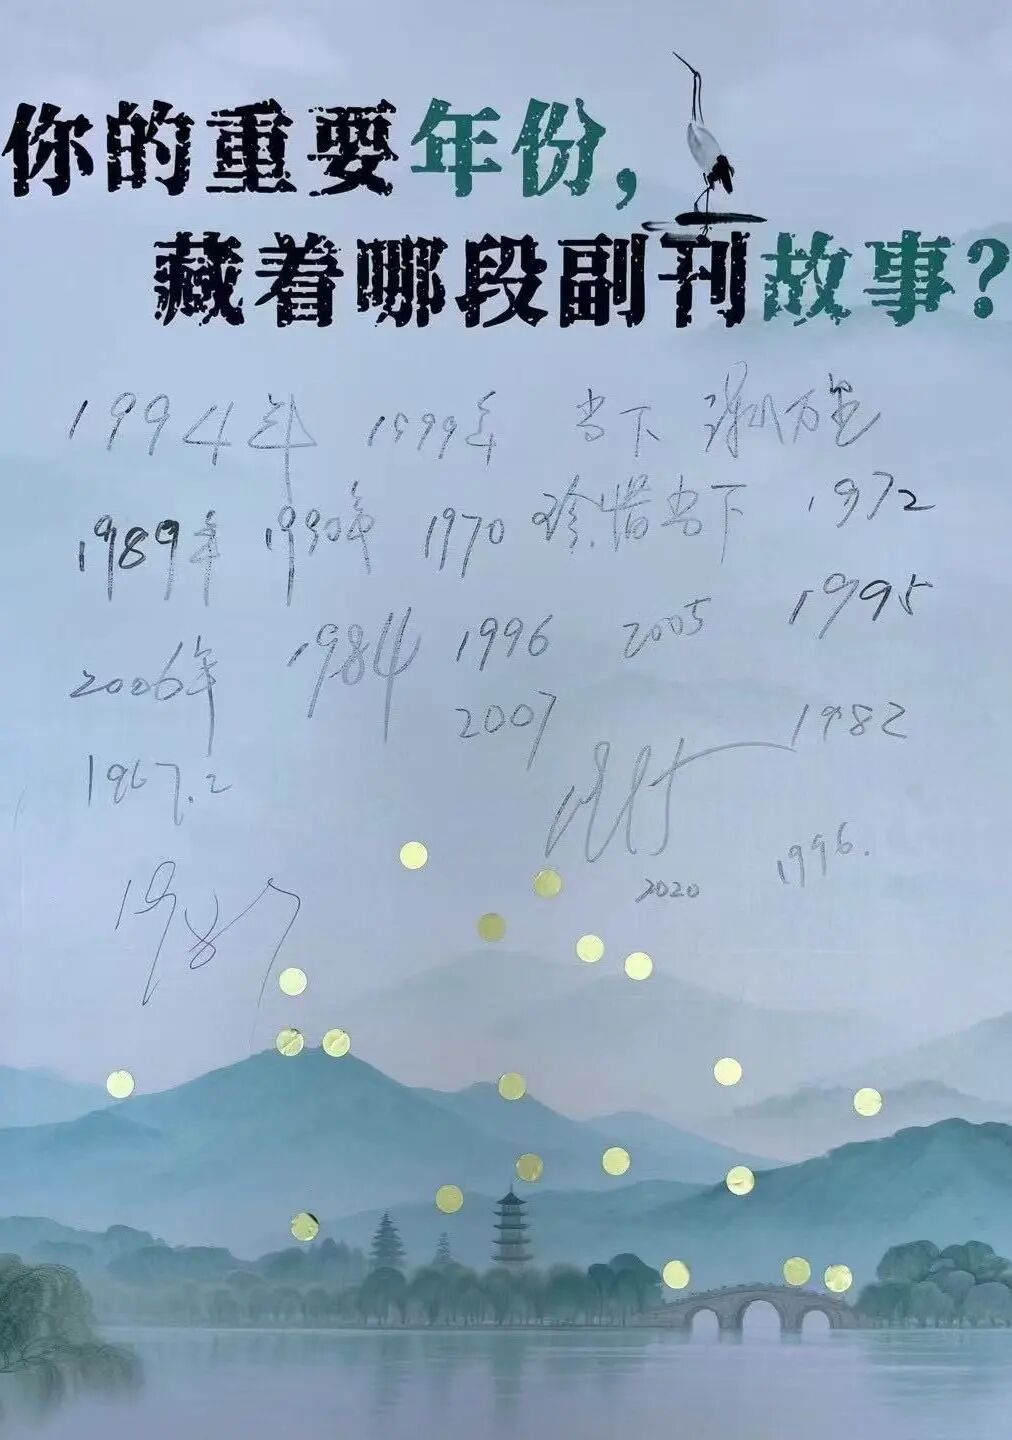 你的重要年份,
藏着哪段副刊故事?
1994年 1999年 当下 万里
1989年 1990年 1970 珍惜当下 1972
2006年 1984 1996 2005 1995
2007 1982
1967.2
2020 1996.
1987